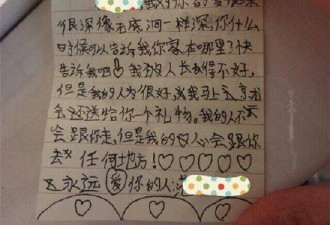 很深像无底洞一样深,你什么
时候可以告诉我你家在哪里?快
告诉我吧!我敌人长得不好,
但是我的人为很好,我马上
会还送给你一个礼物。我的人不
会跟你走,但是我的心会跟你
去 任何地方!♡♡♡♡♡
永远爱你的人: